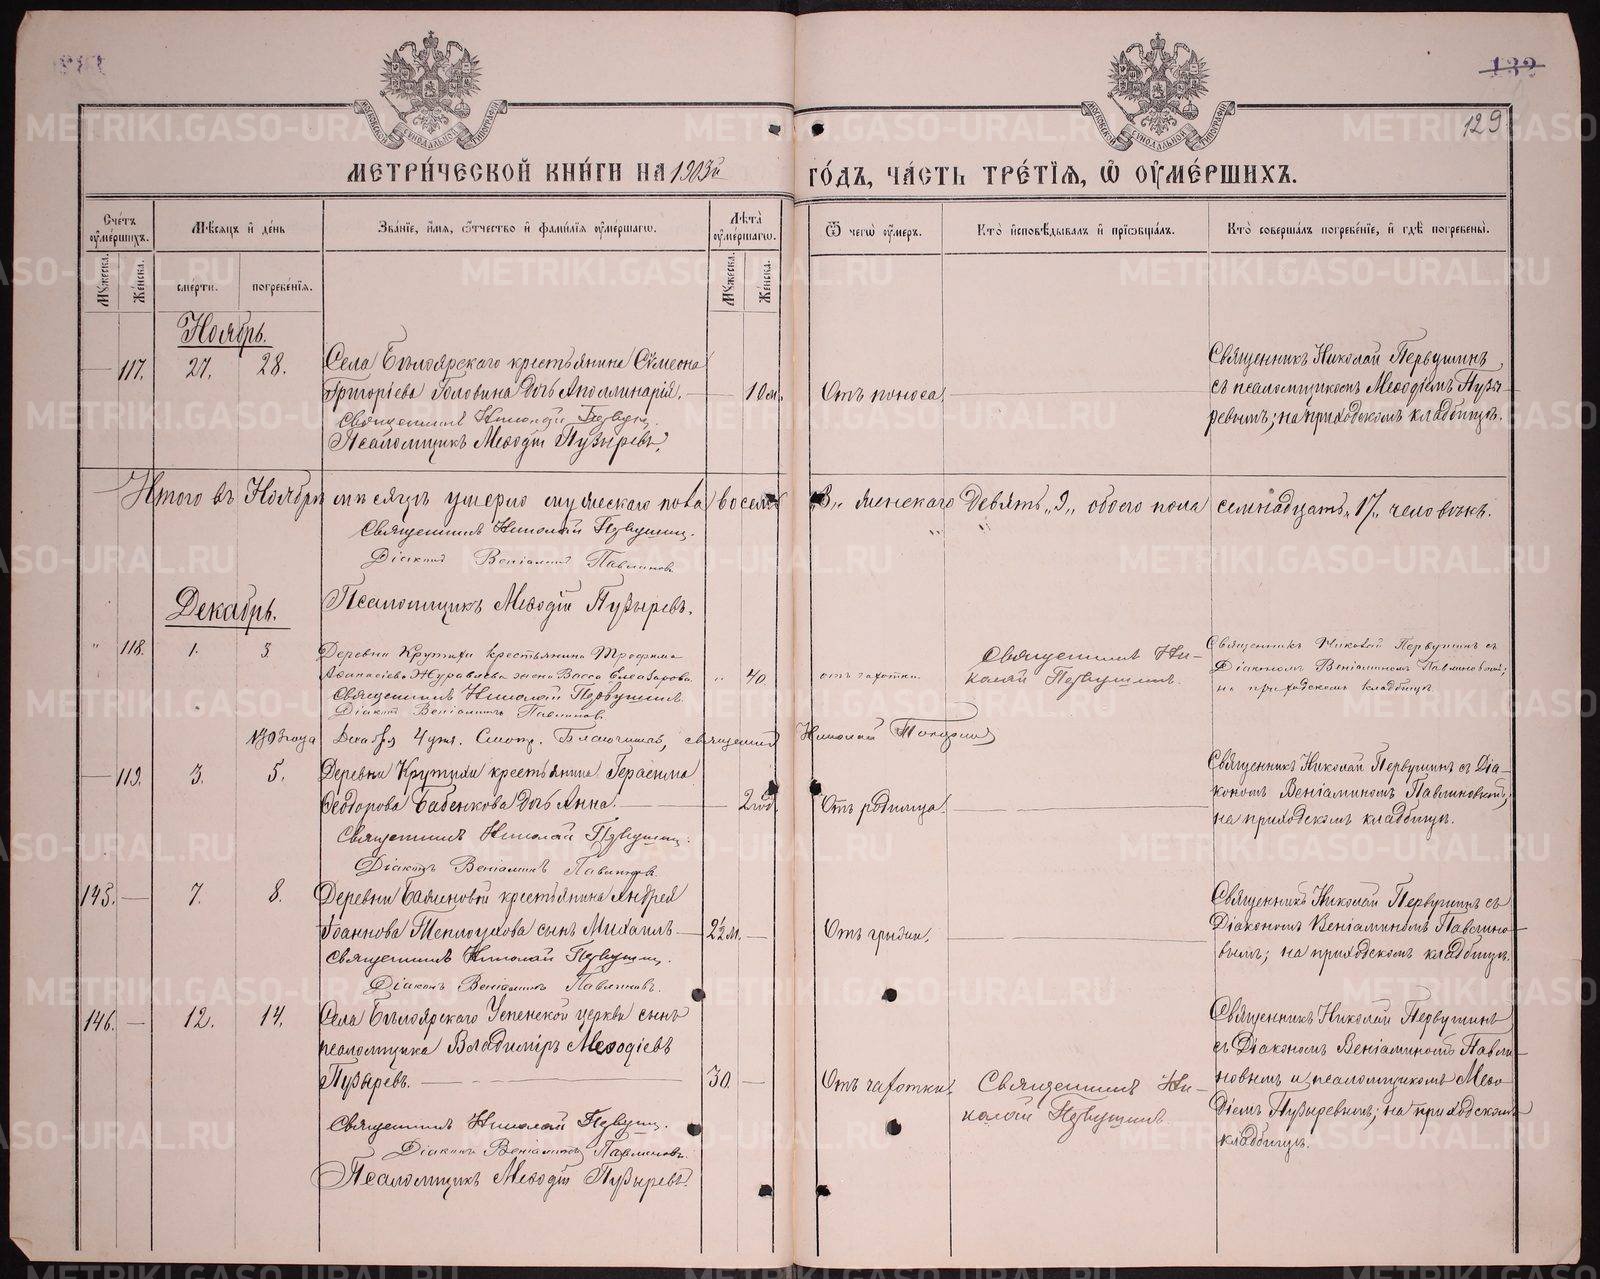 132
129
МОСКОВСКОЙ СѴНОДАЛЬНОЙ ТИПОГРАФІИ
МОСКОВСКОЙ СѴНОДАЛЬНОЙ ТИПОГРАФІИ
МЕТРИ́ЧЕСКОЙ КНИ́ГИ НА 1903й
ГО́ДЪ, ЧА́СТЬ ТРЕ́ТІѦ, Ѽ ОУМЕ́РШИХЪ.
Сче́тъ оуме́ршихъ.
Мѣ́сяцъ и҆ де́нь
Зва́нїе, и҆́мѧ, ѻ҆́тчество и҆ фами́лїѧ оуме́ршагѡ.
Лѣ́та оуме́ршагѡ.
Ѿ чегѡ̀ оу́меръ.
Кто̀ и҆сповѣ́дывалъ и҆ прїѡбща́лъ.
Кто̀ соверша́лъ погребе́нїе, и҆ гдѣ̀ погребены̀.
Мꙋ́жеска.
Же́нска.
сме́рти.
погребе́нїѧ.
Мꙋ́жеска.
Же́нска.
Ноябрь.
117. 27. 28. Села Бѣлоярскаго крестьянина Сѵмеона
Григоріева Головина дочь Аполлинарія. 10 м.
Священникъ Николай Первушинъ
Псаломщикъ Меѳодій Пузыревъ.
Отъ поноса
Священникъ Николай Первушинъ
съ псаломщикомъ Меѳодіемъ Пузы-
ревымъ; на приходскомъ кладбищѣ.
Итого въ Ноябрѣ мѣсяцѣ умерло мужескаго пола восемь „8„ женскаго девять „9„ обоего пола семнадцать „17„ человѣкъ.
Священникъ Николай Первушинъ.
Діаконъ Веніаминъ Павлиновъ
Псаломщикъ Меѳодій Пузыревъ.
Декабрь.
" 118. 1. 3 Деревни Крутихи крестьянина Трофима
Аѳанасіева Журавлева жена Васса Елеазарова " 40.
Священникъ Николай Первушинъ.
Діаконъ Веніаминъ Павлиновъ.
отъ чахотки.
Священникъ Ни-
колай Первушинъ.
Священникъ Николай Первушинъ съ
Діакономъ Веніаминомъ Павлиновымъ;
на приходскомъ кладбищѣ.
1903 года Декабря 4 дня. Смотр. Благочинный, священникъ Николай
119. 3. 5. Деревни Крутихи крестьянина Герасима
Ѳеодорова Бабенкова дочь Анна. 2 год.
Священникъ Николай Первушинъ.
Діаконъ Веніаминъ Павлиновъ.
Отъ родимца.
Священникъ Николай Первушинъ съ Діа-
кономъ Веніаминомъ Павлиновымъ;
на приходскомъ кладбищѣ.
145. 7. 8. Деревни Баженовой крестьянина Андрея
Іоаннова Теплоухова сынъ Михаилъ 2½ м.
Священникъ Николай Первушинъ.
Діаконъ Веніаминъ Павлиновъ.
Отъ грыжи.
Священникъ Николай Первушинъ съ
Діакономъ Веніаминомъ Павлино-
вымъ; на приходскомъ кладбищѣ.
146. 12. 14. Села Бѣлоярскаго Успенской церкви сынъ
псаломщика Владиміръ Меѳодіевъ
Пузыревъ. 30.
Священникъ Николай Первушинъ.
Діаконъ Веніаминъ Павлиновъ.
Псаломщикъ Меѳодій Пузыревъ.
Отъ чахотки.
Священникъ Ни-
колай Первушинъ.
Священникъ Николай Первушинъ
съ Діакономъ Веніаминомъ Павли-
новымъ и псаломщикомъ Меѳо-
діемъ Пузыревымъ; на приходскомъ
кладбищѣ.
METRIKI.GASO-URAL.RU